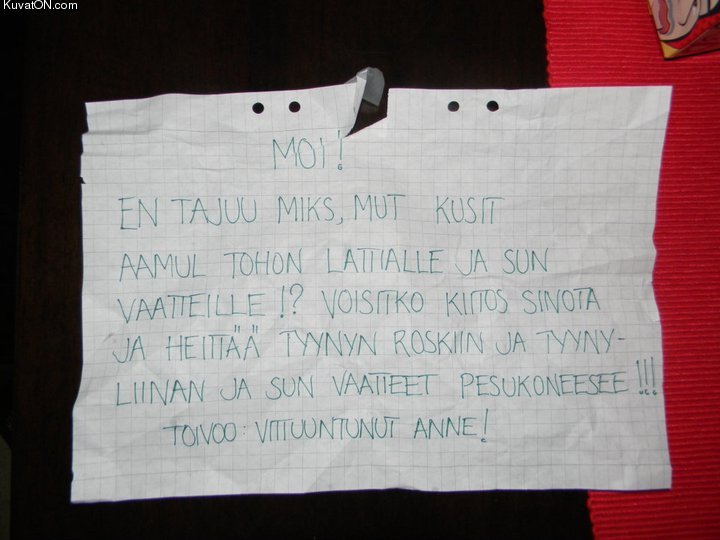 KuvatON.com
MOI!
EN TAJUU MIKS, MUT KUSIT
AAMUL TOHON LATTIALLE JA SUN
VAATTEILLE!? VOISITKO KIITOS SINOTA
JA HEITTÄÄ TYYNYN ROSKIIN JA TYYNY-
LIINAN JA SUN VAATTEET PESUKONEESEE!!!
TOIVOO: VITTUUNTUNUT ANNE!